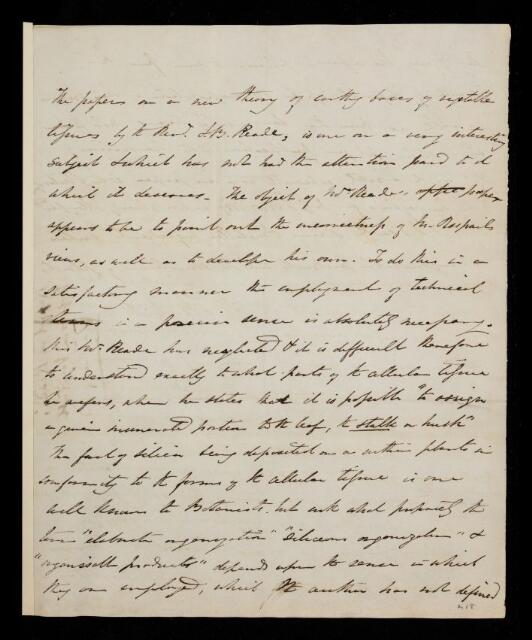 The papers on a new theory of earthy bases of vegetable
tissues by the Revd. J.B. Reade, is one on a very interesting
subject & which has not had the attention paid to it
which it deserves. The object of Mr. Reade's paper
appears to be to point out the incorrectness of M. Raspail's
views, as well as to develope his own. To do this in a
satisfactory manner the employment of technical
terms in a precise sense is absolutely necessary.
This Mr. Reade has neglected & it is difficult therefore
to understand exactly to what parts of the cellular tissue
he refers, when he states that it is possible "to assign
a given numerated portion to the leaf, the stalk or husk"
The fact of silica being deposited in certain plants in
conformity to the forms of the cellular tissue is one
well known to Botanists, but with what propriety the
term "elaborate organization" "siliceous organization" &
"organised products" depends upon the sense in which
they are employed, which the author has not defined